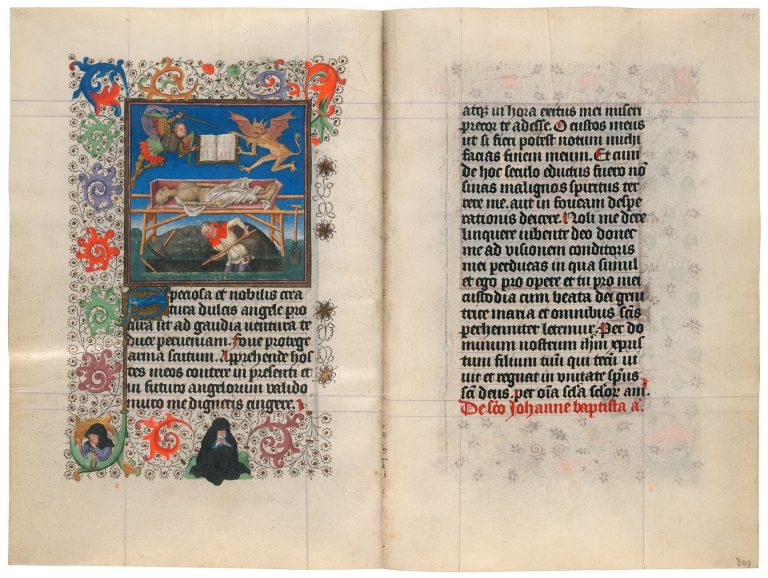 Speciosa et nobilis crea
tura dulcis angele pro
cura ut ad gaudia ventura te
duce perveniam. Fove protege
arma scutum. Apprehende hos
tes meos contere in presenti et
in futuro angelorum valido
muro me digneris cingere.
atq in hora exitus mei miseri
precor te adesse. O custos meus
ut si fieri potest notum michi
facias finem meum. Et cum
de hoc seculo eductus fuero no
sinas malignos spiritus ter
rere me. aut in foveam despe
rationis deicere. Noli me dere
linquere iubente deo donec
me ad visionem conditoris
mei perducas in qua simul
et ego pro opere et tu pro mei
custodia cum beata dei geni
trice maria et omnibus scis
perhenniter letemur. Per do
minum nostrum ihm xpris
tum filium tuum qui tecu vi
vit et regnat in unitate spus
sci deus. per oia scla sclor am.
De sco Johanne baptista a.